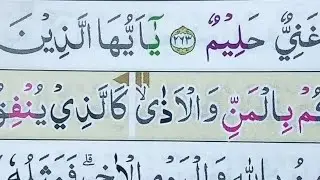 غَنِيٌّ حَلِيْمٌ ۝٢٦٣ يٰٓاَيُّهَا الَّذِيْنَ
كُمْ بِالْمَنِّ وَالْاَذٰىۙ كَالَّذِيْ يُنْفِقُ
بِاللّٰهِ وَالْيَوْمِ الْاٰخِرِۗ فَمَثَلُهٗ